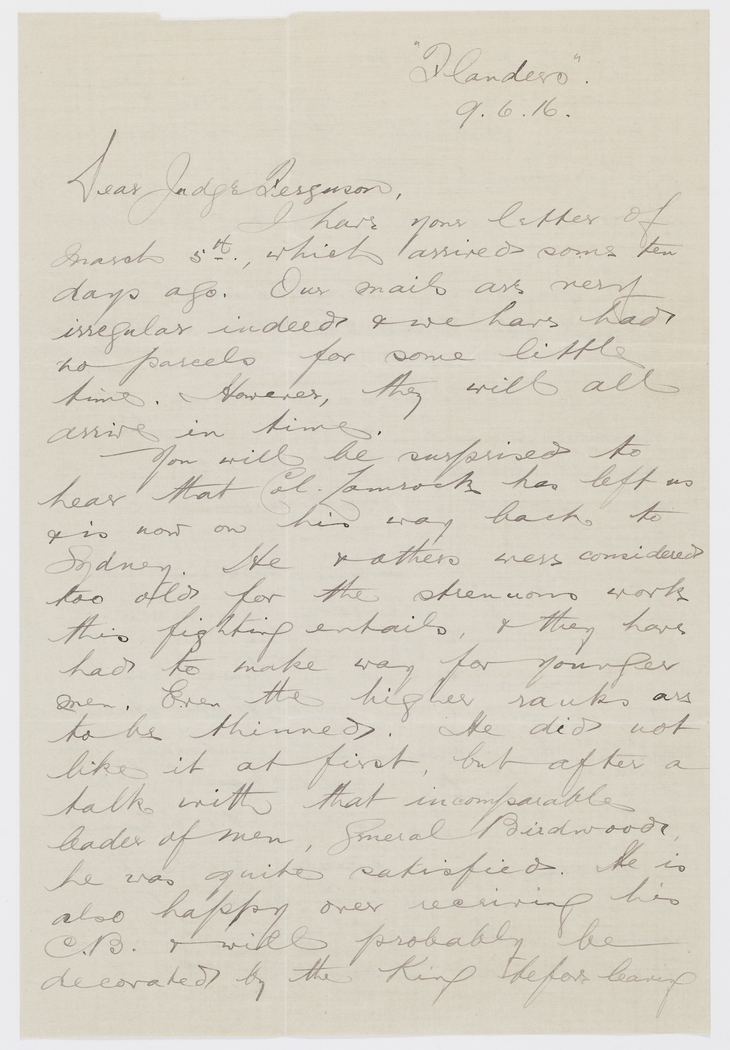 "Flanders".
9.6.16.
Dear Judge Ferguson,
I have your letter of
March 5th., which arrived some ten
days ago. Our mails are very
irregular indeed & we have had
no parcels for some little
time. However, they will all
arrive in time.
You will be surprised to
hear that Col. Lamrock has left us
& is now on his way back to
Sydney. He & others were considered
too old for the strenuous work
this fighting entails, & they have
had to make way for younger
men. Even the higher ranks are
to be thinned. He did not
like it at first, but after a
talk with that incomparable
leader of men, General Birdwood,
he was quite satisfied. He is
also happy over receiving his
C.B. & will probably be
decorated by the King before leaving